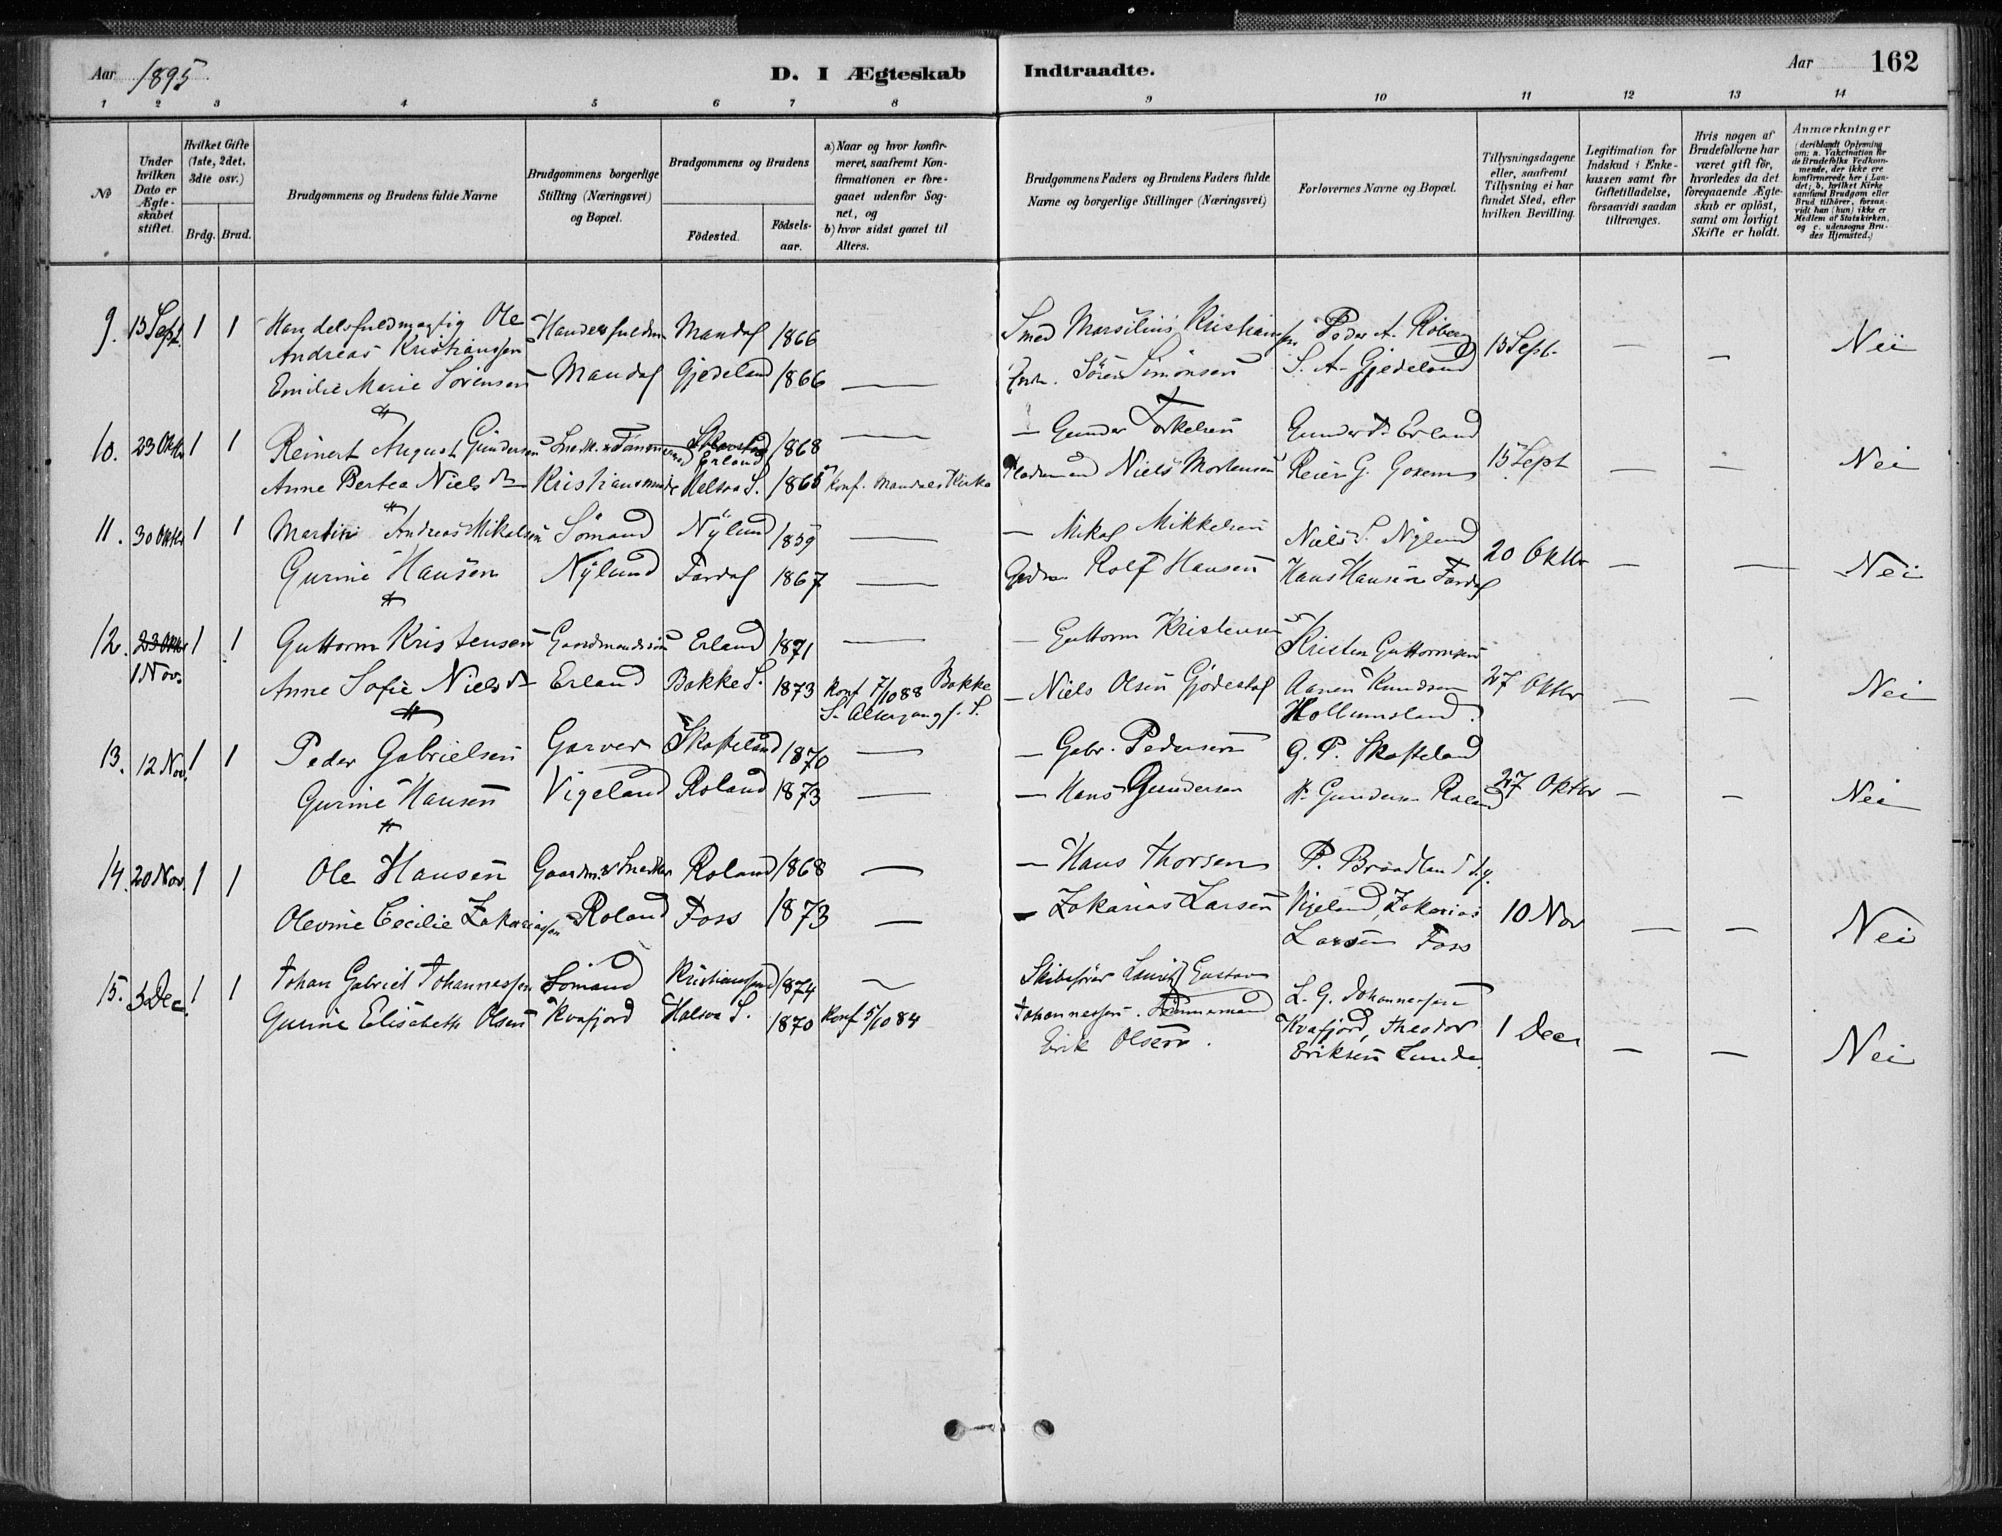 Aar 1895
D. I Ægteskab
Indtraadte.
Aar 162
1 2 3 4 5 6 7 8 9 10 11 12 13 14
No
Under hvilken Dato er Ægteskabet stiftet.
Hvilket Gifte (1ste, 2det, 3die osv.)
Brdg. Brud.
Brudgommens og Brudens fulde Navne
Brudgommens borgerlige Stilling (Næringsvei) og Bopæl.
Brudgommens og Brudens
Fødested. Fødselsaar.
a) Naar og hvor konfirmeret, saafremt Konfirmationen er foregaaet udenfor Sognet, og
b) hvor sidst gaaet til Alters.
Brudgommens Faders og Brudens Faders fulde Navne og borgerlige Stillinger (Næringsvei)
Forlovernes Navne og Bopæl.
Tillysningsdagene eller, saafremt Tillysning ei har fundet Sted, efter hvilken Bevilling.
Legitimation for Indskud i Enkekassen samt for Giftetilladelse, forsaavidt saadan tiltrænges.
Hvis nogen af Brudefolkene har været gift før, hvorledes da det foregaaende Ægteskab er opløst, samt om lovligt Skifte er holdt.
Anmærkninger (deriblandt Oplysning om: a. Vakcination for de Brudefolks Vedkommende, der ikke ere konfirmerede her i Landet; b, hvilket Kirkesamfund Brudgom eller Brud tilhører, forsaavidt han (hun) ikke er Medlem af Statskirken, og c. udensogns Brudes Hjemsted.)
9. 15 Sept. 1 1 Handelsfuldmægtig Ole Handelsfuldm Mandal 1866 — Smed Marsilius Kristianssen Peder A. Röberg 15 Sept. — — Nei
Andreas Kristianssen
Emilie Marie Sörensen Mandal Gjedeland 1866 — Sören Simonsen S. A. Gjedeland
10. 23 Oktbr 1 1 Reinert August Gundersen Snedk. & Tömmermand Erland 1868 — — Gunder Torkelsen Gunder T. Erland 15 Sept — — Nei
Anne Bertea Nielsdr Kristiansund Halsaa S. 1865 Konf. Mandals Kirke Niels Mortensen Reier G.
11. 30 Oktbr 1 1 Martin Andreas Mikalsen Sömand Nÿlund 1859 — — Mikal Mikkelsen Niels S. Nÿlund 20 Oktbr — — Nei
Gurine Hansen Nÿlund Fardal 1867 — Rolf Hansen Hans Hansen Fardal
12. 23 Oktbr 1 1 Guttorm Kristensen Gaardmandssön Erland 1871 — — Guttorm Kristensen Kristen Guttormsen 27 Oktbr — — Nei
1 Nov. Anne Sofie Nielsdr Erland Bakke S. 1873 Konf 7/10 88 Bakke — Niels Olsen Gjödestøl Aanen Knudsen
S. Altergang f. S. Hollumsland.
13. 12 Nov. 1 1 Peder Gabrielsen Garver Skofteland 1870 — — Gabr. Pedersen G. P. Skofteland 27 Oktbr — — Nei
Gurine Hansen Vigeland Roland 1873 — — Hans Gundersen H. Gundersen Roland
14. 20 Nov. 1 1 Ole Hansen Gaardm. & Snedker Roland 1868 — — Hans Thorsen P. Braadland d.y. 10 Nov — — Nei
Olevine Cecilie Zakariassen Roland Foss 1873 — — Zakarias Larsen Vigeland, Zakarias
Larsen Foss
15. 3 Dec. 1 1 Johan Gabriel Johannessen Sömand Kristianssand 1874 — Skibsförer Lauritz Gustav L. G. Johannessen 1 Dec — — Nei
Gurine Elisebeth Olsen Kvafjord Halsaa S. 1870 Konf 5/10 84 Johannessen. Tömmermand Kvafjord, Theodor
Erik Olsen. Eriksen Lunde.